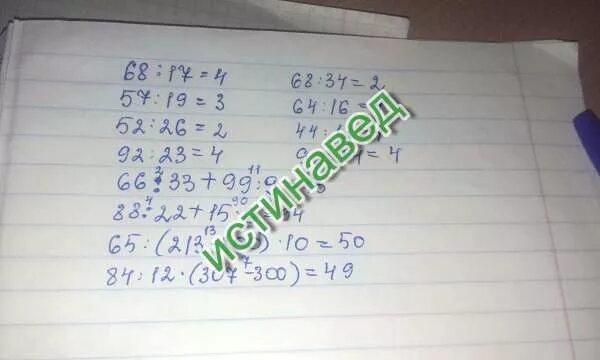 68:17=4 68:34=2
57:19=3 64:16=
52:26=2 44:
92:23=4 =4
66:33+99:
88:22+15
65:(213 )·10=50
84:12·(307-300)=49
ИСТИНАВЕД